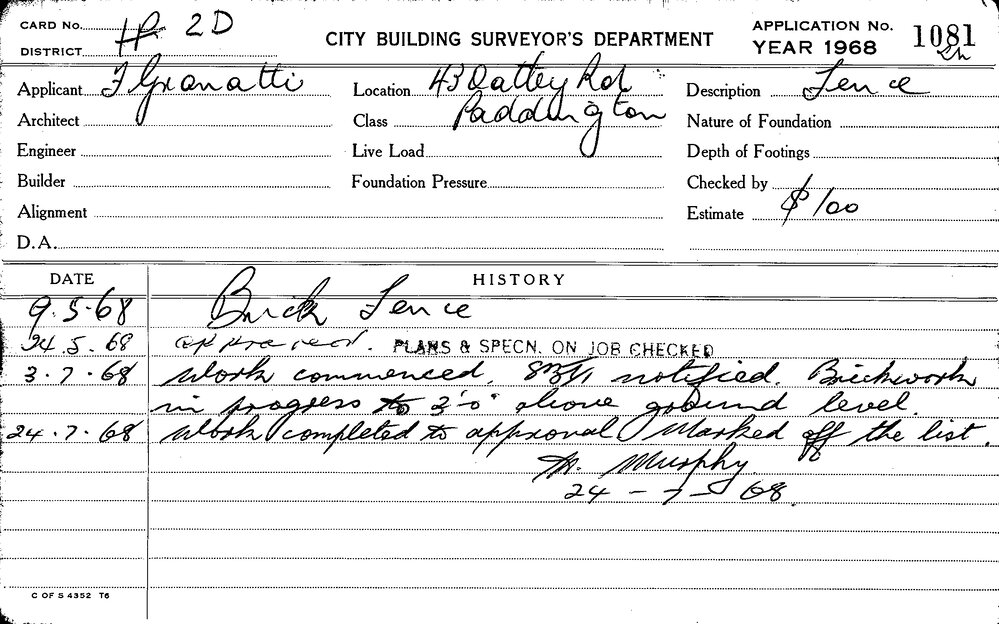 CARD No. HP 2D
DISTRICT
CITY BUILDING SURVEYOR'S DEPARTMENT
APPLICATION No. 1081
YEAR 1968
Applicant F Granatti
Location 43 Oatley Rd
Description Fence
Architect
Class Paddington
Nature of Foundation
Engineer
Live Load
Depth of Footings
Builder
Foundation Pressure
Checked by
Alignment
Estimate $100
D.A.
DATE HISTORY
9.5.68 Brick Fence
24.5.68 approved. PLANS & SPECN. ON JOB CHECKED
3.7.68 Work commenced. notified. Brickwork
in progress to 3'0" above ground level.
24.7.68 Work completed to approval Marked off the list.
Murphy
24-7-68.
C OF S 4352 T6